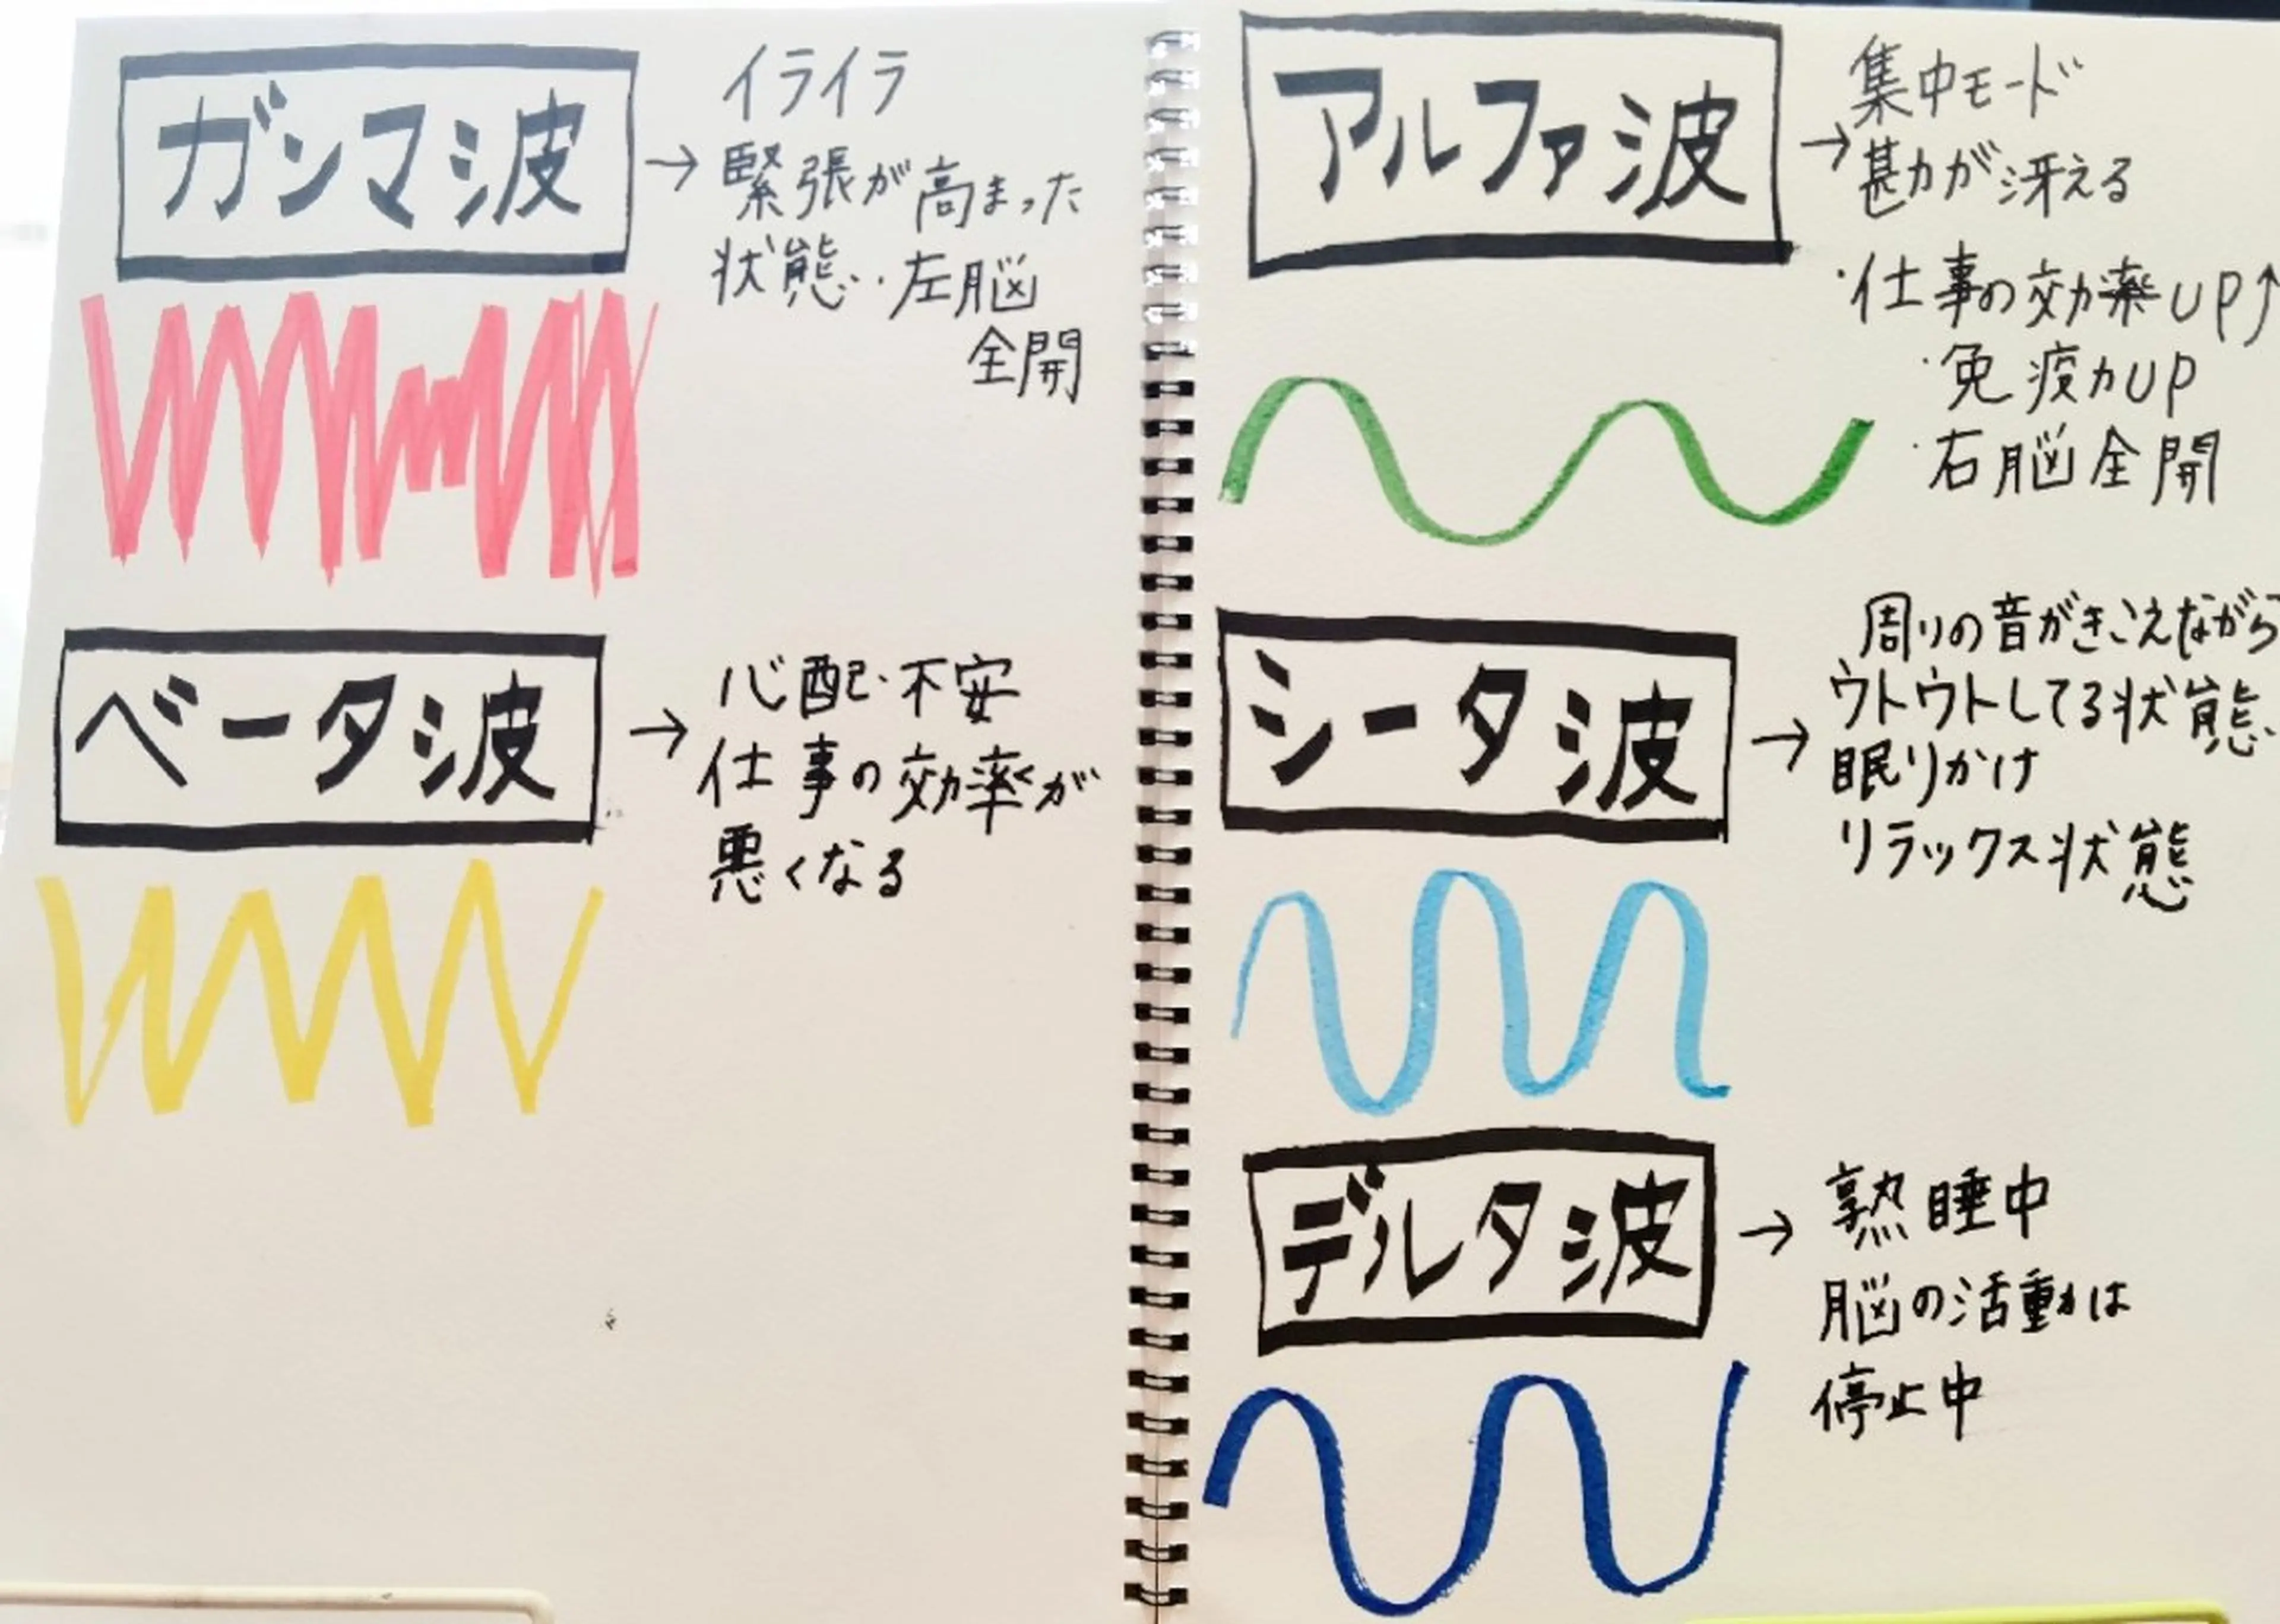 ガンマ波
→イライラ
緊張が高まった
状態‥左脳
全開
ベータ波
→心配・不安
仕事の効率が
悪くなる
アルファ波
→集中モード
勘が冴える
・仕事の効率UP↑
・免疫力UP
・右脳全開
シータ波
→周りの音がきこえながら
ウトウトしてる状態
眠りかけ
リラックス状態
デルタ波
→熟睡中
脳の活動は
停止中